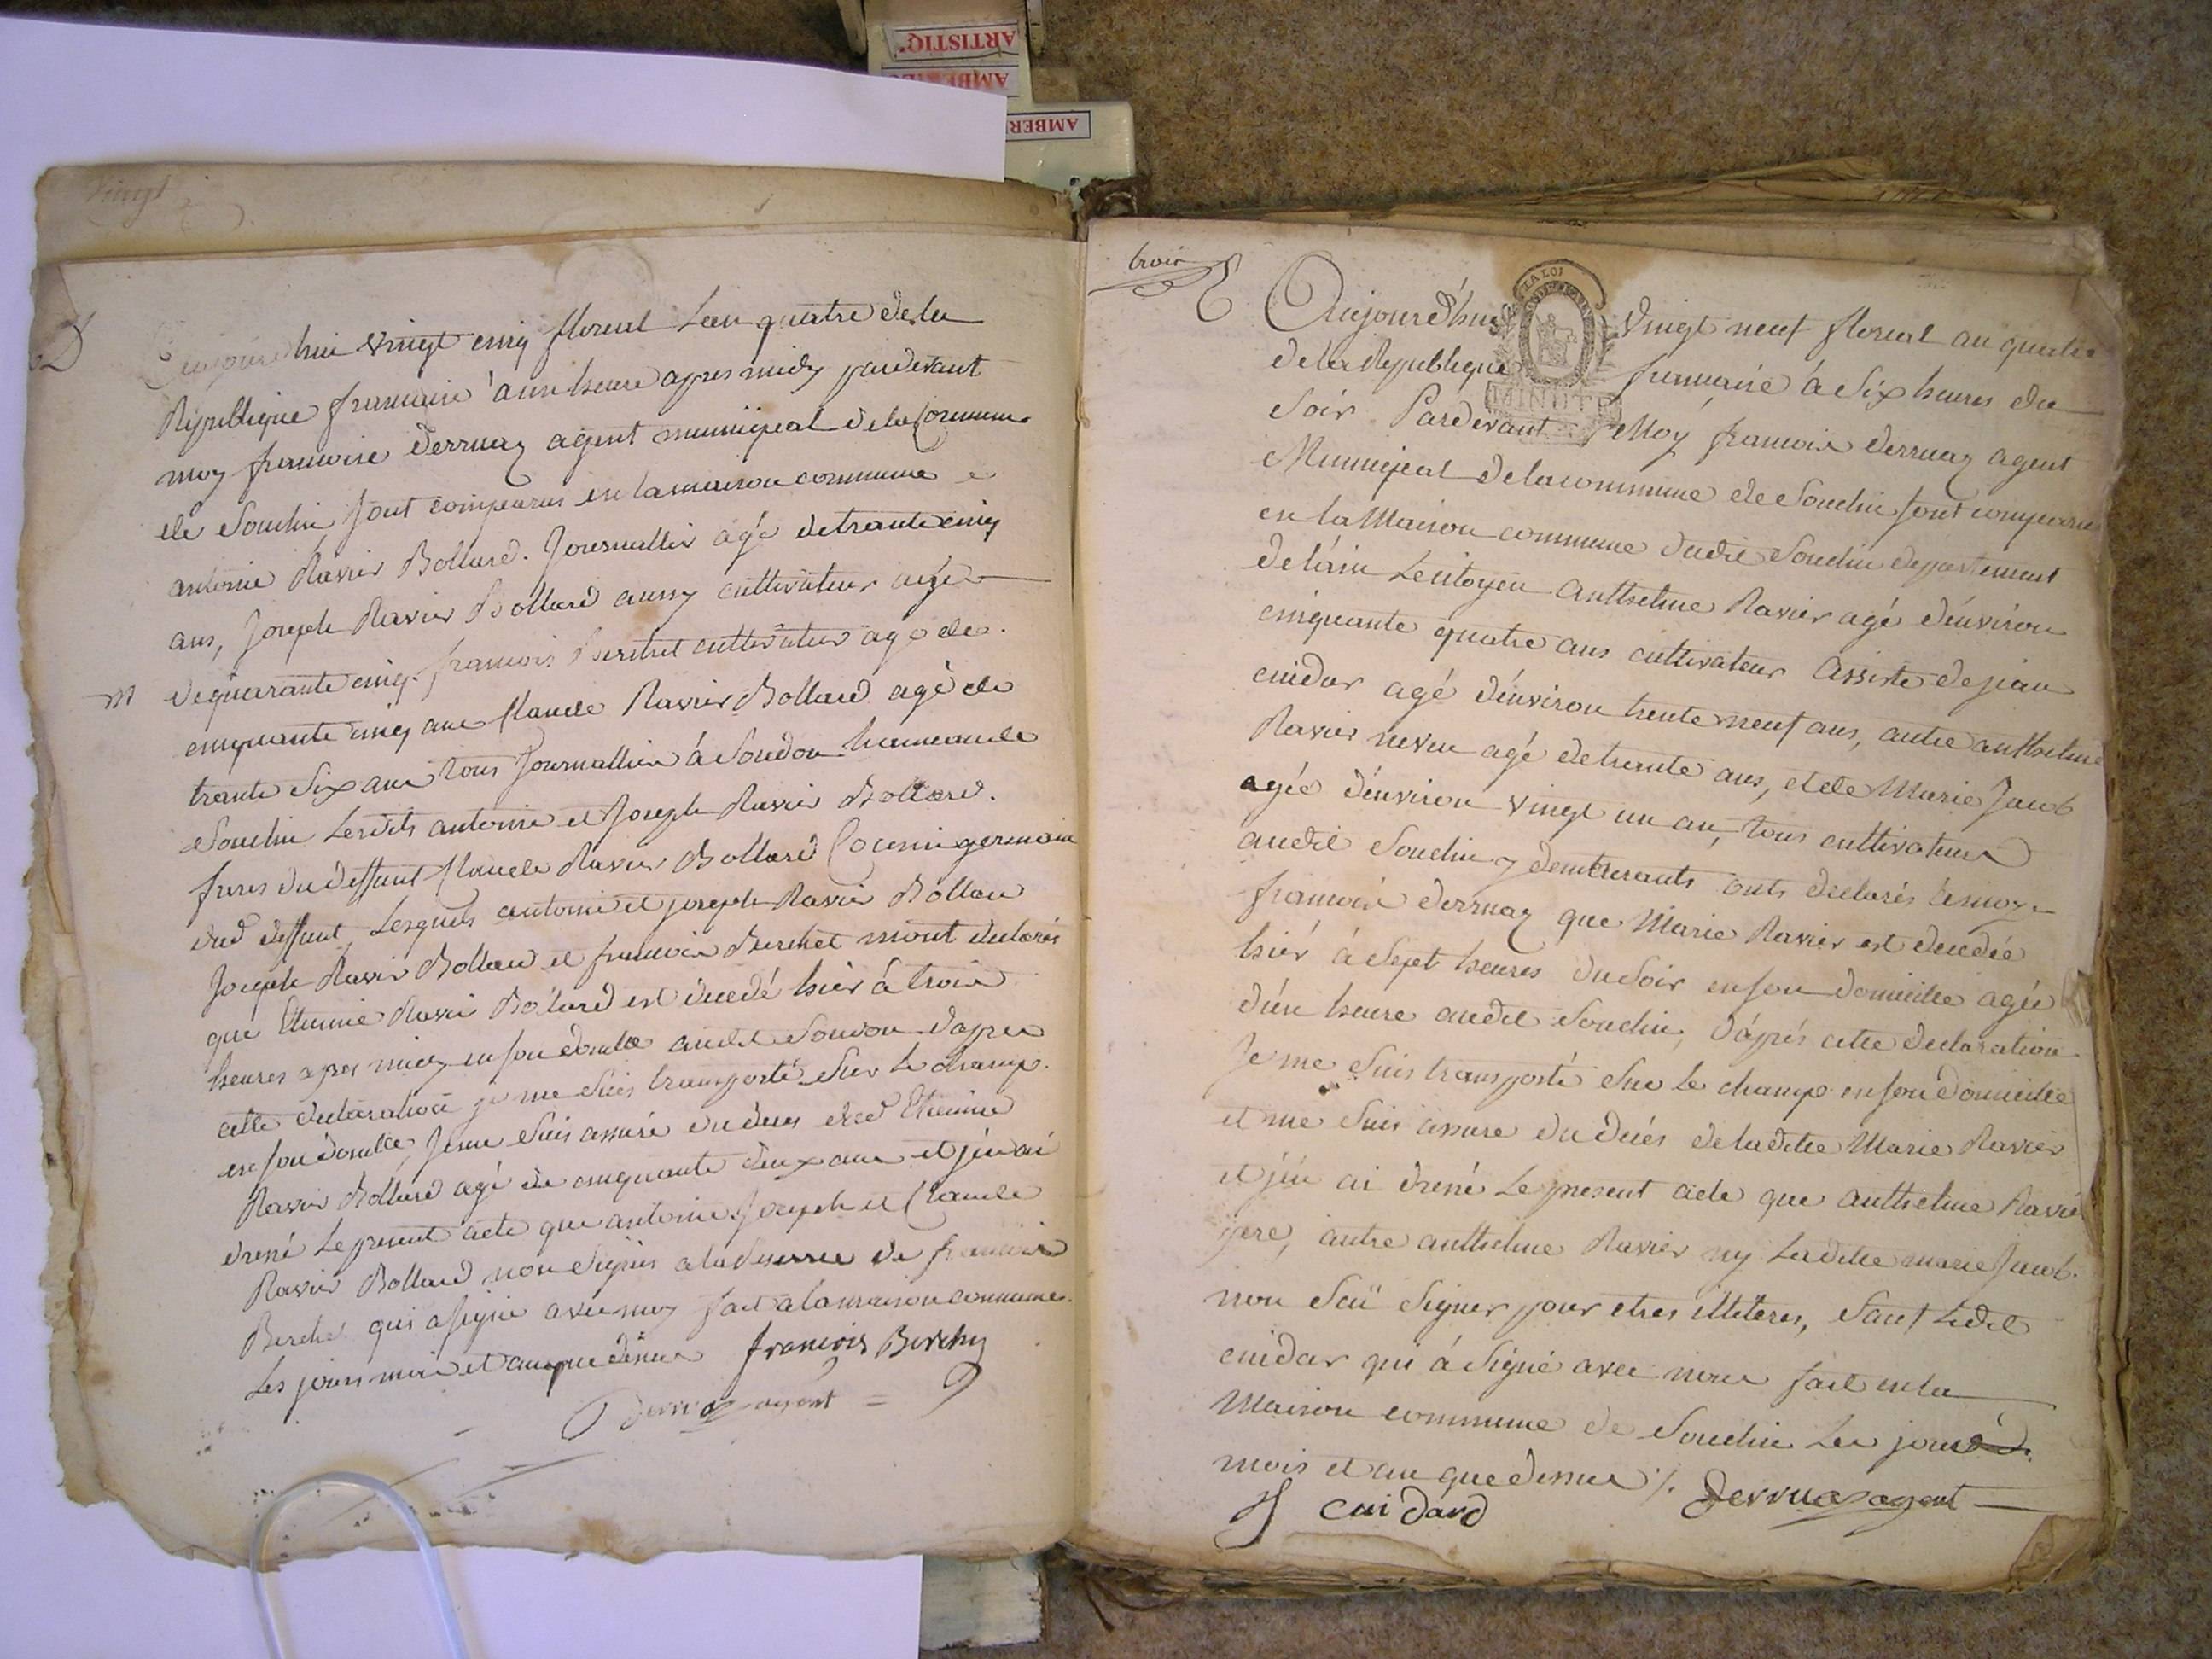 ARTISTIQ'
AMBE
AMBER
vingt
D
Aujourdhui vingt cinq floreal Lan quatre dela
République francaise à une heure apres midy pardevant
moy francoise derruaz agent municipal dela Commune
de Souclin sont comparus en la maison commune
antoine Ravier Bollard. Journallier agé de trante cinq
ans, Joseph Ravier Bollard aussy cultivateur agé
de quarante cinq. francois Berchet cultivateur agé de.
cinquante cinq ans Claude Ravier Bollard agé de
trante Six ans tous Journallier à Soudon hameau de
Souclin Lesdits antoine et Joseph Ravier Bollard.
freres du deffunt Claude Ravier Bollard Cousin germain
dud deffunt, Lesquels antoine et joseph Ravier Bollard
Joseph Ravier Bollard et francois Berchet mont declarés
que Etienne Ravier Bollard est decedé hier à trois
heures apres midy en son domicile audit Soudon dapres
cette declaration je me suis transporté Sur Le champ.
en son domicile, Je me Suis assuré du deces dud Etienne
Ravier Bollard agé de cinquante deux ans et j'en ai
dressé Le present acte que antoine Joseph et Claude
Ravier Bollard non Signés a la reserve de francois
Berchet qui a signé avec moy fait a la maison commune.
Les jours mois et an que dessus francois Berchy
derruaz agent =
trois
LA LOI
MINUT
Aujourd'hui vingt neuf floreal an quatre
de la Republique francaise à Six heures du
Soir. Pardevant Moy francois derruaz agent
Municipal de la commune de Souclin sont comparus
en la Maison commune dudit Souclin departement
de l'ain Le citoyen anthelme Ravier agé d'environ
cinquante quatre ans cultivateur Assisté de jean
cuidar agé d'environ trente neuf ans, autre anthelme
Ravier neveu agé de trente ans, et de Marie Jacob
agée d'environ vingt un an, tous cultivateurs
audit Souclin y demeurants onts declarés à moy
francois derruaz que Marie Ravier est decedée
hier à Sept heures du Soir en son domicile agée
d'un heure audit Souclin, d'après cette declaration
Je me Suis transporté Sur Le champ en son domicile
et me Suis assuré du decés de ladite Marie Ravier
et j'en ai dressé Le present acte que anthelme Ravier
pere, autre anthelme Ravier ny Ladite marie Jacob.
non Saü Signer pour etres illiteres, Sauf Ledit
cuidar qui à Signé avec nous fait en la
Maison commune de Souclin Les jours
mois et an que dessus ./. Derruaz agent
J cuidard